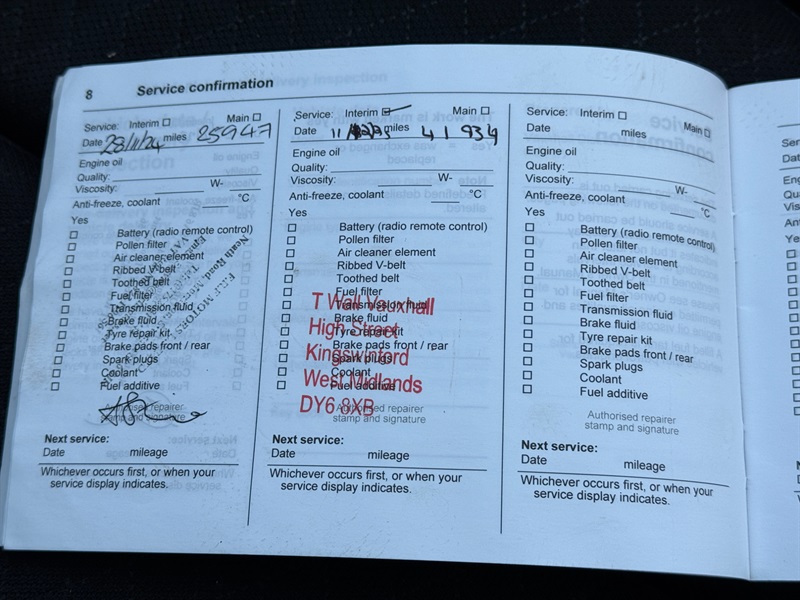 8 Service confirmation
Service: Interim ☐ Main ☐
Date 28/11/24 miles 25947
Engine oil
Quality:
Viscosity: W-
Anti-freeze, coolant °C
Yes
☐ Battery (radio remote control)
☐ Pollen filter
☐ Air cleaner element
☐ Ribbed V-belt
☐ Toothed belt
☐ Fuel filter
☐ Transmission fluid
☐ Brake fluid
☐ Tyre repair kit
☐ Brake pads front / rear
☐ Spark plugs
☐ Coolant
☐ Fuel additive
Authorised repairer
stamp and signature
Next service:
Date mileage
Whichever occurs first, or when your
service display indicates.
Service: Interim ☑ Main ☐
Date 11 miles 41934
Engine oil
Quality:
Viscosity: W-
Anti-freeze, coolant °C
Yes
☐ Battery (radio remote control)
☐ Pollen filter
☐ Air cleaner element
☐ Ribbed V-belt
☐ Toothed belt
☐ Fuel filter
☐ Transmission fluid
☐ Brake fluid
☐ Tyre repair kit
☐ Brake pads front / rear
☐ Spark plugs
☐ Coolant
☐ Fuel additive
T Wall Vauxhall
High Street
Kingswinford
West Midlands
DY6 8XB
Authorised repairer
stamp and signature
Next service:
Date mileage
Whichever occurs first, or when your
service display indicates.
Service: Interim ☐ Main ☐
Date miles
Engine oil
Quality:
Viscosity: W-
Anti-freeze, coolant °C
Yes
☐ Battery (radio remote control)
☐ Pollen filter
☐ Air cleaner element
☐ Ribbed V-belt
☐ Toothed belt
☐ Fuel filter
☐ Transmission fluid
☐ Brake fluid
☐ Tyre repair kit
☐ Brake pads front / rear
☐ Spark plugs
☐ Coolant
☐ Fuel additive
Authorised repairer
stamp and signature
Next service:
Date mileage
Whichever occurs first, or when your
service display indicates.